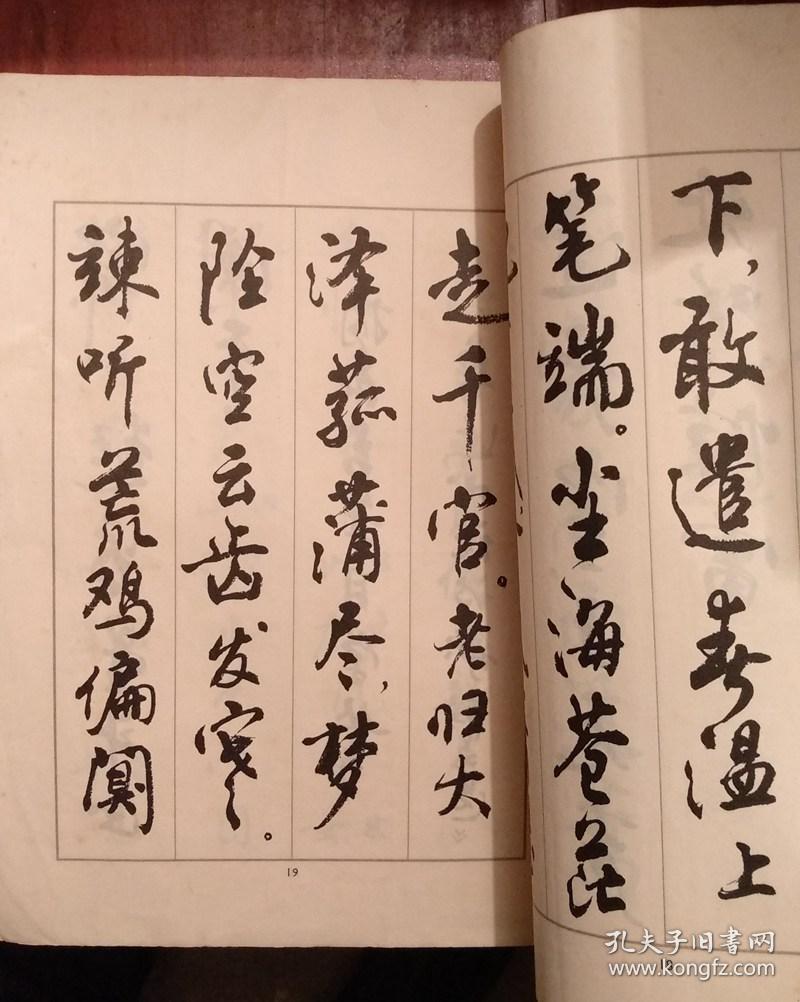 下，敢遣春温上
笔端。尘海苍茫
走千官。老归大
泽菰蒲尽，梦
坠空云齿发寒。
竦听荒鸡偏阒
19
孔夫子旧书网
www.kongfz.com